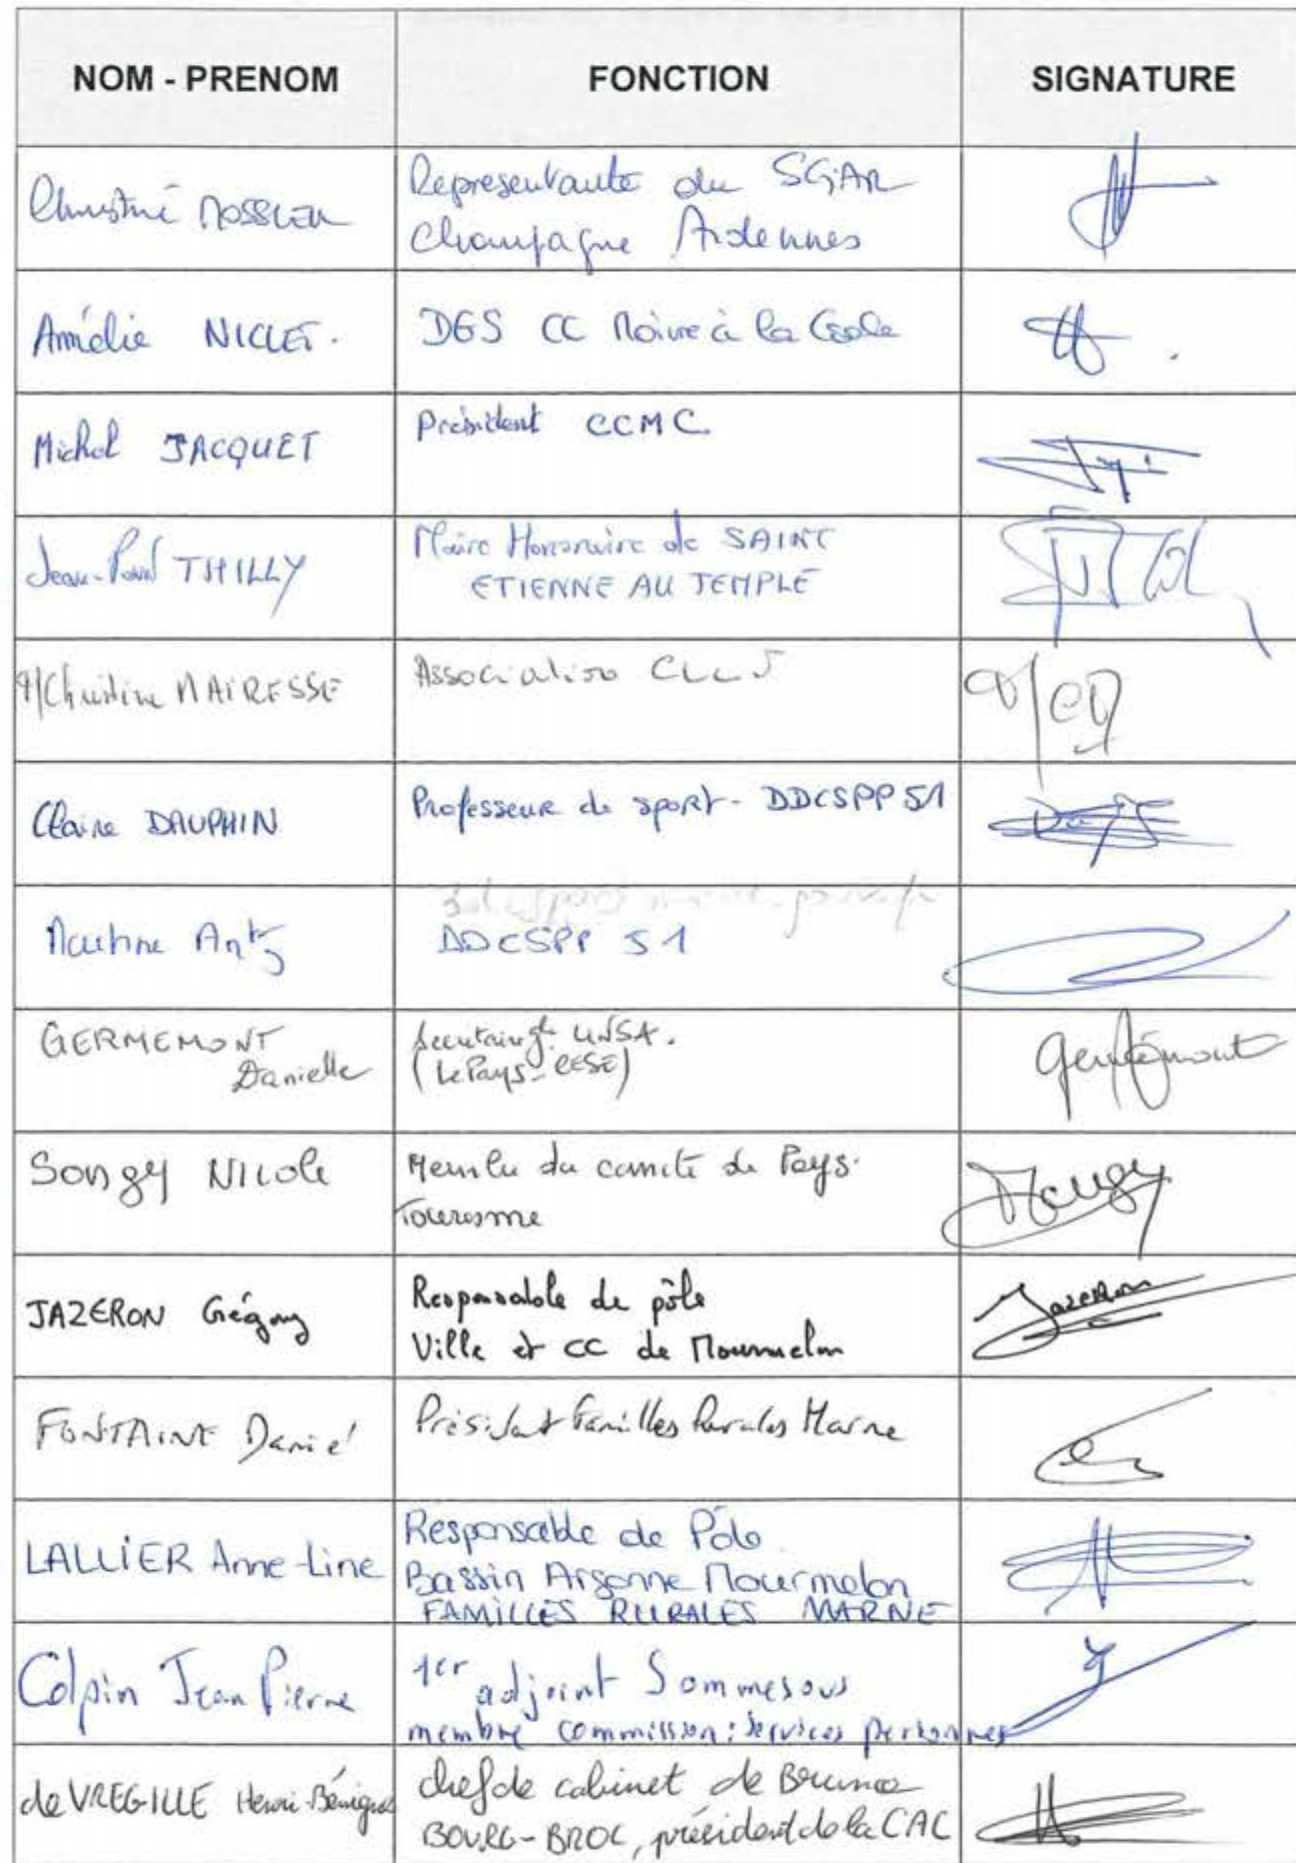 NOM - PRENOM FONCTION SIGNATURE
Christine Representante du SGAR
Champagne Ardennes
Amélie NICLET. DGS CC Moivre à la Coole
Michel JACQUET Président CCMC
Jean-Paul THILLY Maire Honoraire de SAINT
ETIENNE AU TEMPLE
Christine MAIRESSE Association CLLJ
Claire DAUPHIN Professeur de sport - DDCSPP51
Martine DDCSPP 51
GERMEMONT
Danielle
UNSA.
(Le Pays- CESE)
Songy Nicole Membre du comité de Pays.
Tourisme
JAZERON Grégory Responsable de pôle
Ville et CC de Mourmelon
FONTAINE Daniel Président Familles Rurales Marne
LALLIER Anne-Line Responsable de Pôle
Bassin Argonne Mourmelon
FAMILLES RURALES MARNE
Colpin Jean Pierre 1er adjoint Sommesous
membre commission : services personnes
de VREGILLE Henri-Bénigne chef de cabinet de Bruno
BOURG-BROC, président de la CAC